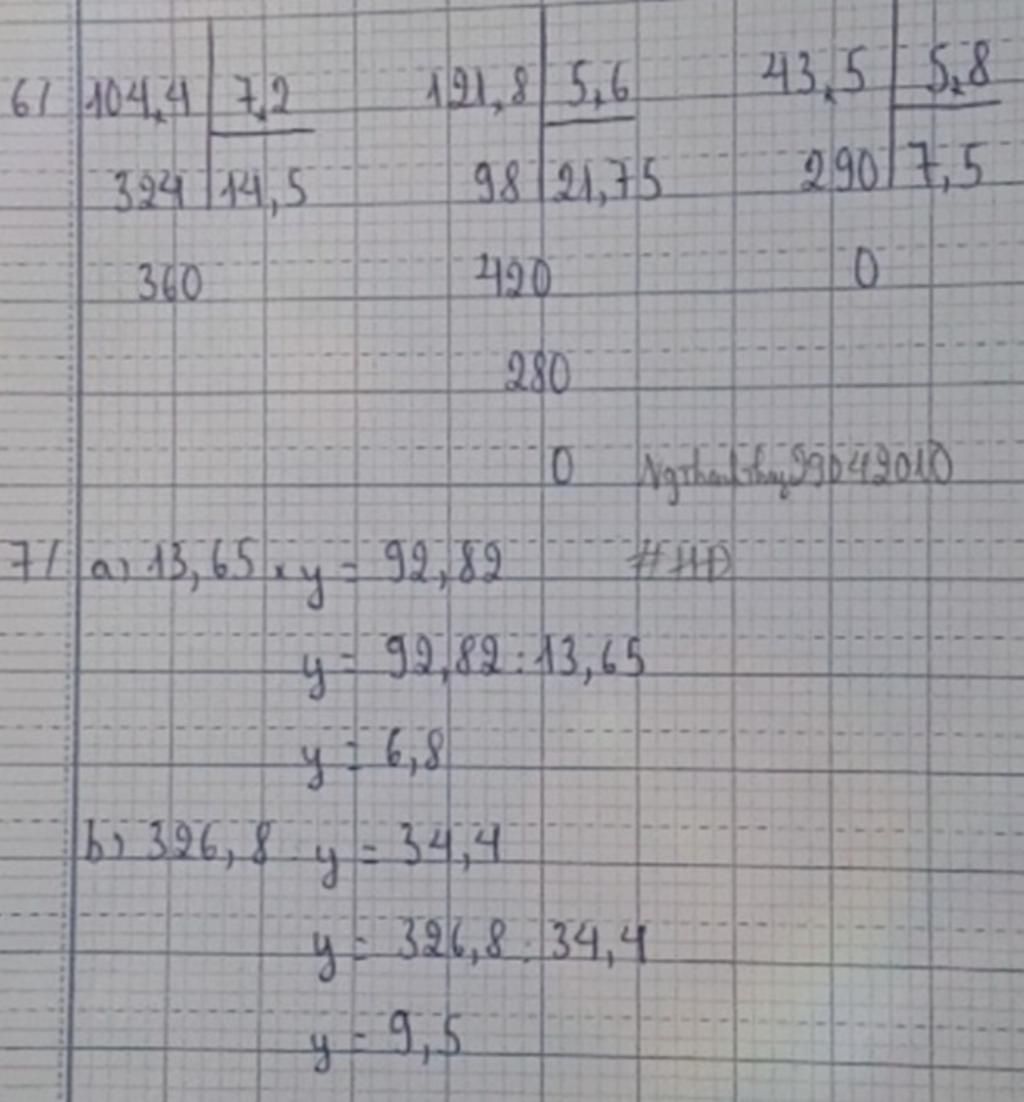 6/ 104,4 7,2 121,8 5,6 43,5 5,8
324 14,5 98 21,75 290 7,5
360 420 0
280
0
7/ a) 13,65 . y = 92,82 #HD
y = 92,82 : 13,65
y = 6,8
b) 326,8 y = 34,4
y = 326,8 : 34,4
y = 9,5